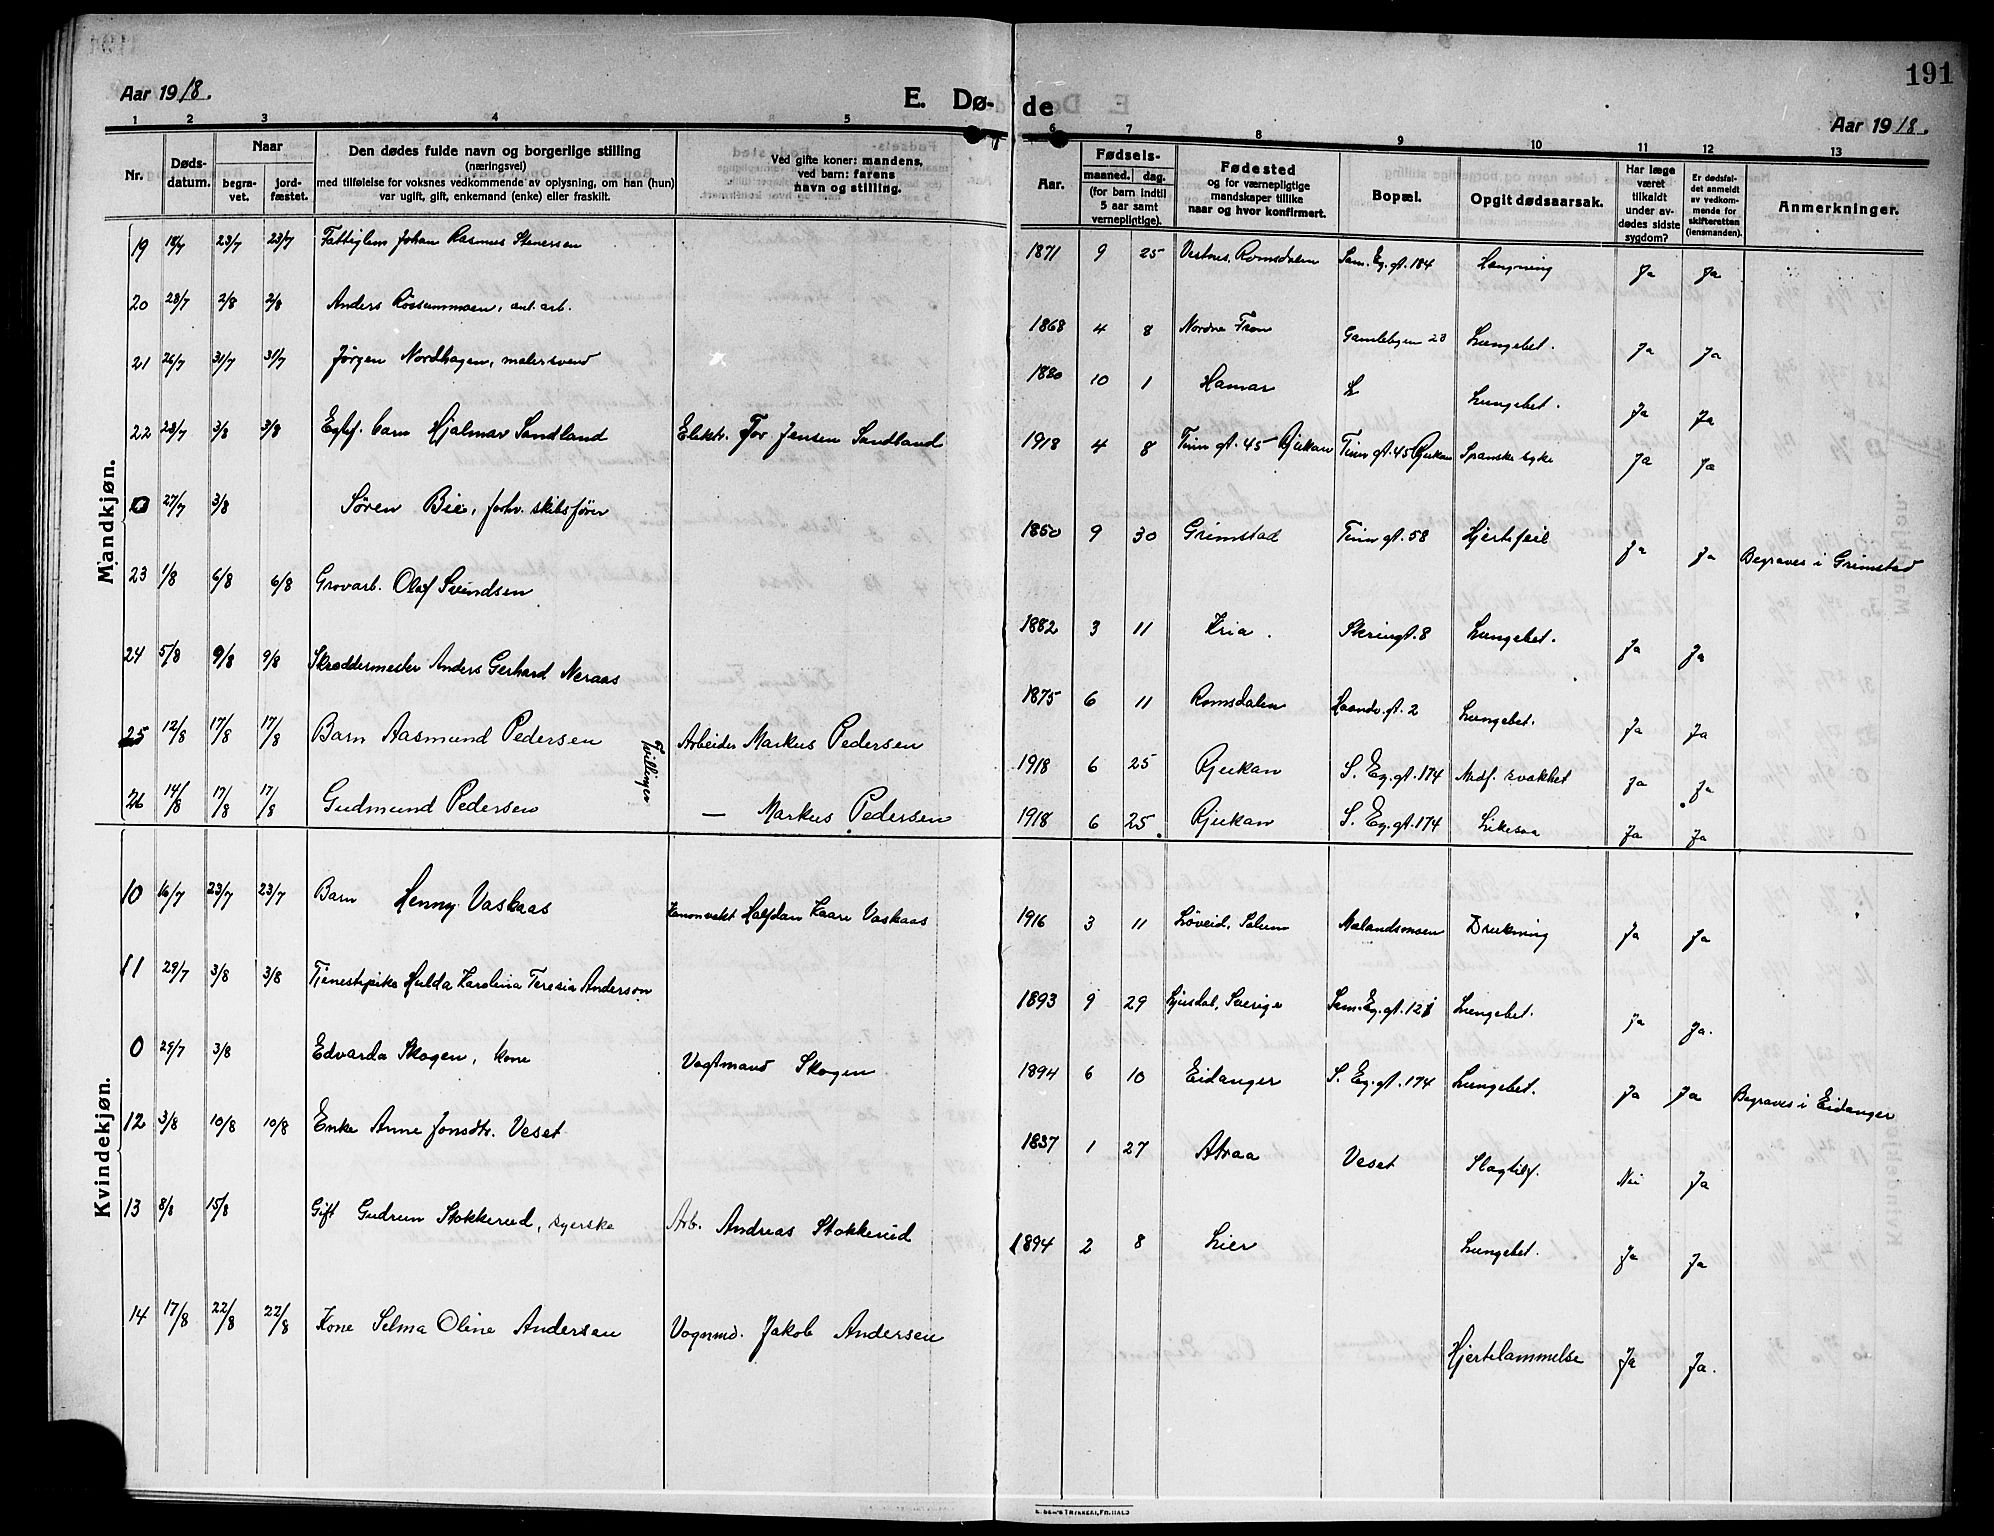 191
Aar 1918. E. Dø- de Aar 1918.
1 2 3 4 5 6 7 8 9 10 11 12 13
Nr. Døds-datum. Naar begra-vet. jord-fæstet. Den dødes fulde navn og borgerlige stilling (næringsvei) med tilføielse for voksnes vedkommende av oplysning, om han (hun) var ugift, gift, enkemand (enke) eller fraskilt. Ved gifte koner: mandens, ved barn: farens navn og stilling. Aar. Fødsels- maaned. dag. (for barn indtil 5 aar samt vernepligtige). Fødested og for værnepligtige mandskaper tillike naar og hvor konfirmert. Bopæl. Opgit dødsaarsak. Har læge været tilkaldt under av-dødes sidste sygdom? Er dødsfal-det anmeldt av vedkom-mende for skifteretten (lensmanden). Anmerkninger.
Mandkjøn.
19 18/7 23/7 23/7 Fattiglem Johan Rasmus Stenersen 1871 9 25 Vestnes, Romsdalen Sam. Eg. gt. 184 Hængning Ja Ja
20 28/7 2/8 2/8 Anders Rössummoen, anl. arb. 1868 4 8 Nordre Fron Gamlebyen 23 Lungebet. Ja Ja
21 26/7 31/7 31/7 Jørgen Nordhagen, malersvend 1880 10 1 Hamar Lungebet. Ja Ja
22 28/7 3/8 3/8 Egtef. barn Hjalmar Sandland Elektr. Tor Jensen Sandland 1918 4 8 Tinn gt. 45 Rjukan Tinn gt. 45 Rjukan Spanske syke Ja Ja
0 27/7 3/8 Søren Bie, forhv. skibsfører 1850 9 30 Grimstad Tinn gt. 58 Hjertefeil Ja Ja Begraves i Grimstad
23 1/8 6/8 6/8 Grovarb. Olaf Svendsen 1882 3 11 Kria. Skringt. 8 Lungebet. Ja Ja
24 5/8 9/8 9/8 Skræddermester Anders Gerhard Neraas 1875 6 11 Romsdalen Haandv. gt. 2 Lungebet. Ja Ja
25 12/8 17/8 17/8 Barn Aasmund Pedersen Tvillinger Arbeider Markus Pedersen 1918 6 25 Rjukan S. Eg. gt. 174 Medf. svakhet Ja Ja
26 14/8 17/8 17/8 Gudmund Pedersen — Markus Pedersen 1918 6 25. Rjukan S. Eg. gt. 174 Likesaa Ja Ja
Kvindekjøn.
10 16/7 23/7 23/7 Barn Henny Vaskaas Kanonvakt Halfdan Kaare Vaskaas 1916 3 11 Løveid, Solum Mælandsmoen Drukning Ja Ja
11 29/7 3/8 3/8 Tjenestepike Hulda Karolina Teresia Anderson 1893 9 29 Ljusdal, Sverige Sam. Eg. gt. 121 Lungebet. Ja Ja.
0 29/7 3/8 Edvarda Skogen, kone Vagtmand Skogen 1894 6 10 Eidanger S. Eg. gt. 174 Lungebet. Ja Ja Begraves i Eidanger
12 3/8 10/8 10/8 Enke Anne Jonsdtr. Veset 1837 1 27 Atraa Veset Slagtilf. Nei Ja
13 8/8 15/8 Gift Gudrun Stokkerud, syerske Arb. Andreas Stokkerud 1894 2 8 Lier Lungebet. Ja Ja
14 17/8 22/8 22/8 Kone Selma Oline Andersen Vognmd. Jakob Andersen Hjertelammelse Ja Ja.